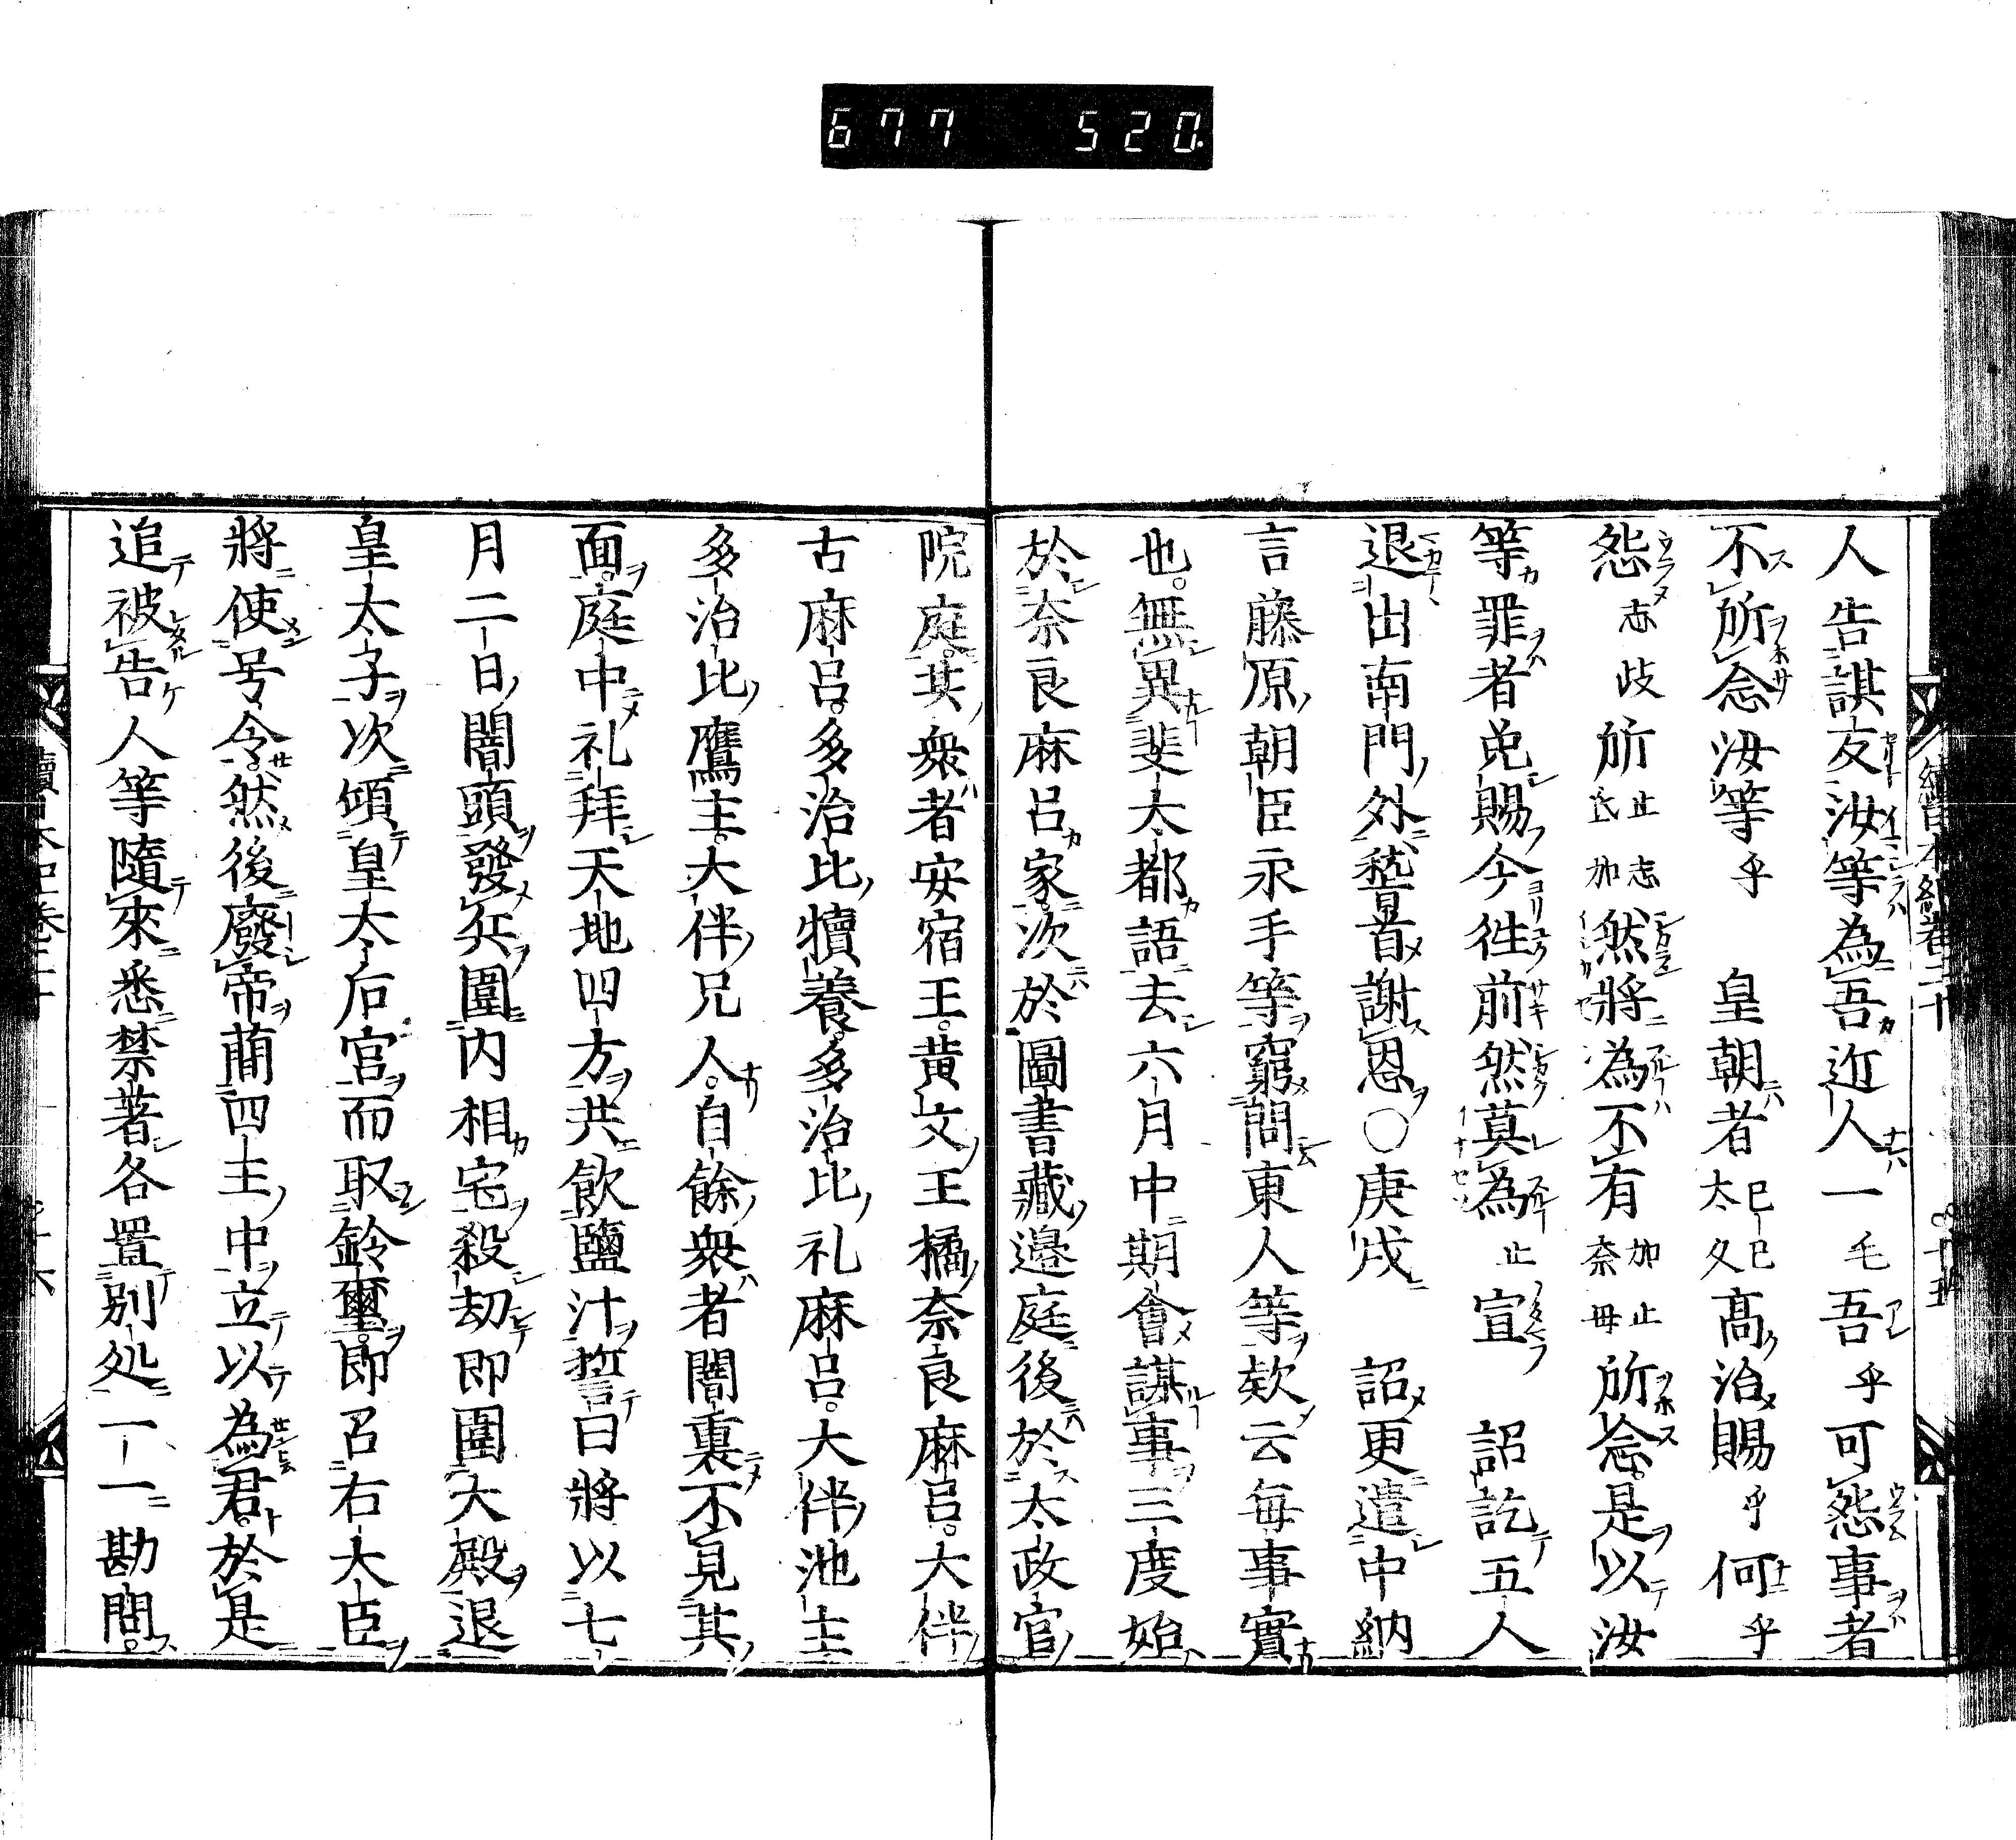 677 520
人告謀反汝等為吾近人一毛吾乎可怨事者
不所念汝等乎 皇朝者太久己己高治賜乎何乎
怨志岐所氐止加志然将為不有奈加毋止所念是以汝
等罪者免賜今徃前然莫為止宣 詔訖五人
退出南門外𥡴首謝恩○庚戌 詔更遣中納
言藤原朝臣永手等窮問東人等欵云毎事實
也。無異斐太都語去六月中期會謀事三度始
於奈良麻呂家次於圖書藏邊庭後於太政官
院庭其衆者安宿王。黄文王橘奈良麻呂。大伴
古麻呂。多治比犢養。多治比礼麻呂。大伴池主
多治比鷹主。大伴兄人。自餘衆者闇裏不見其
面。庭中礼拜天地四方共飲鹽汁誓曰將以七
月二日闇頭發兵圍内相宅殺劫即圍大殿退
皇太子次傾皇太后宮而取鈴璽。即召右大臣
將使号令。然後廢帝蕳四主中立以為君。於是
追被告人等隨來悉禁著各置別処一一勘問。